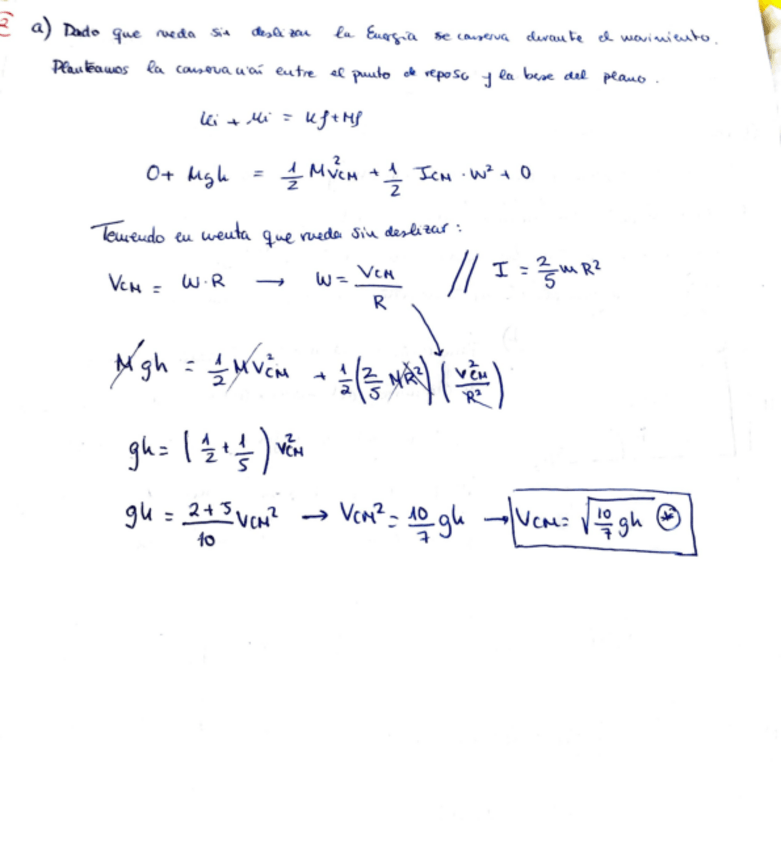 a) Dado que rueda sin deslizar la Energía se conserva durante el movimiento.
Planteamos la conservación entre el punto de reposo y la base del plano.
Ki + Mi = Kf + Mf
0 + Mgh = 1/2 MV²CM + 1/2 ICM · W² + 0
Teniendo en cuenta que rueda sin deslizar:
VCM = W·R → W = VCM/R // I = 2/5 m R²
Mgh = 1/2 MV²CM + 1/2 (2/5 MR²) (V²CM/R²)
gh = (1/2 + 1/5) V²CM
gh = 2+5/10 VCM² → VCM² = 10/7 gh → VCM = √10/7 gh *